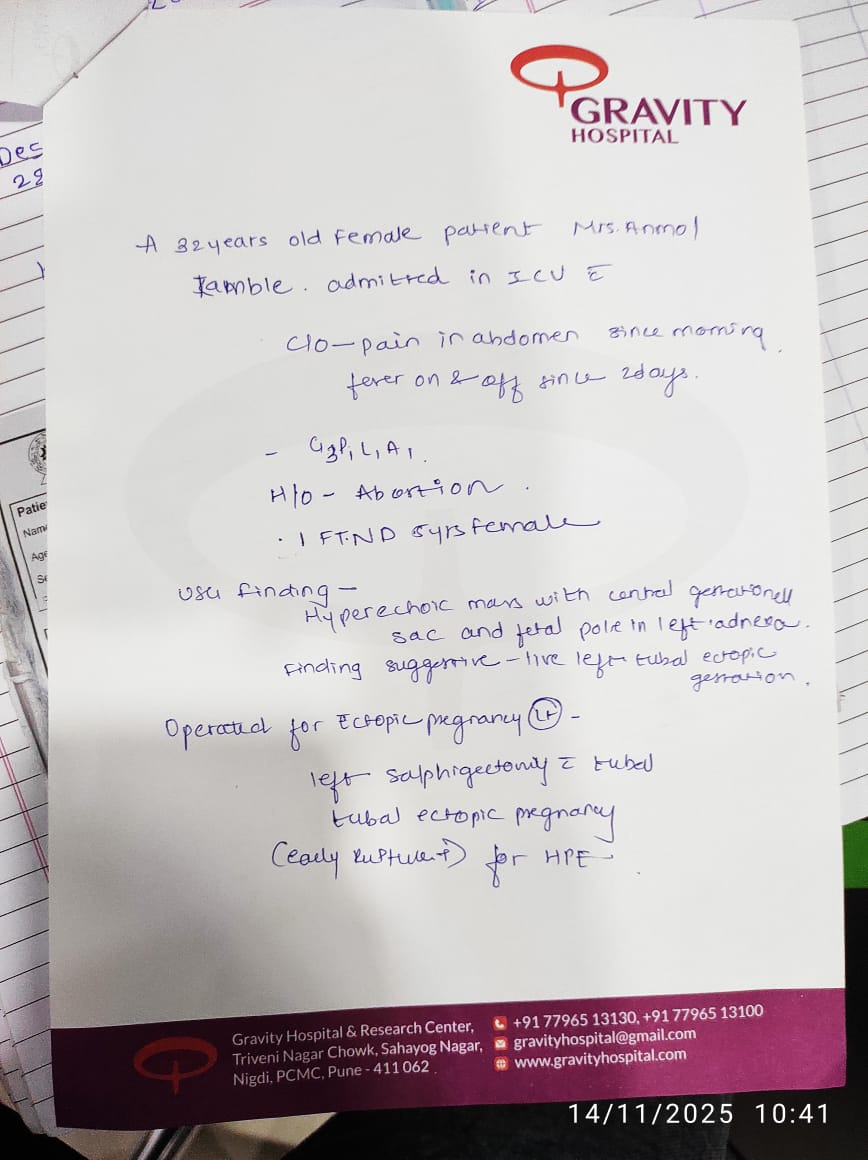 GRAVITY
HOSPITAL
Des
28
A 32 years old Female patient Mrs. Anmol
Kamble. admitted in ICU c̄
C/O - pain in abdomen since morning
fever on & off since 2days.
- G3P1L1A1.
H/O - Abortion.
. 1 FTND 5yrs female
USG Finding -
Hyperechoic mass with central gestationell
sac and fetal pole in left adnexa.
Finding suggestive - live left tubal ectopic
gestation.
Operated for Ectopic pregnancy (Lt) -
left Salphigectomy c̄ tubal
tubal ectopic pregnancy
(Early Rupture+) for HPE
Patie
Name
Age
Se
Gravity Hospital & Research Center,
Triveni Nagar Chowk, Sahayog Nagar,
Nigdi, PCMC, Pune - 411 062.
+91 77965 13130, +91 77965 13100
gravityhospital@gmail.com
www.gravityhospital.com
14/11/2025 10:41